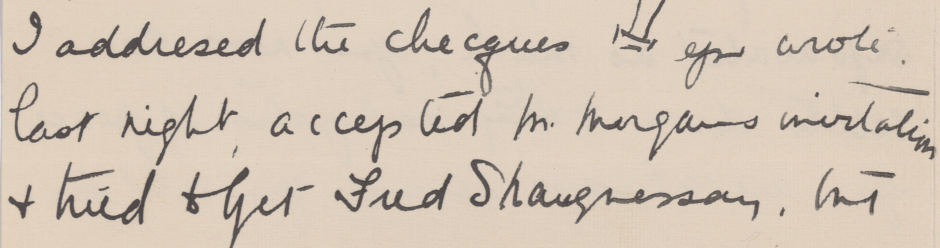 I addresed the checques you wrote.
last night, accepted Mr. Morgans invitation
& tried to get Fred Shaugnessay, but